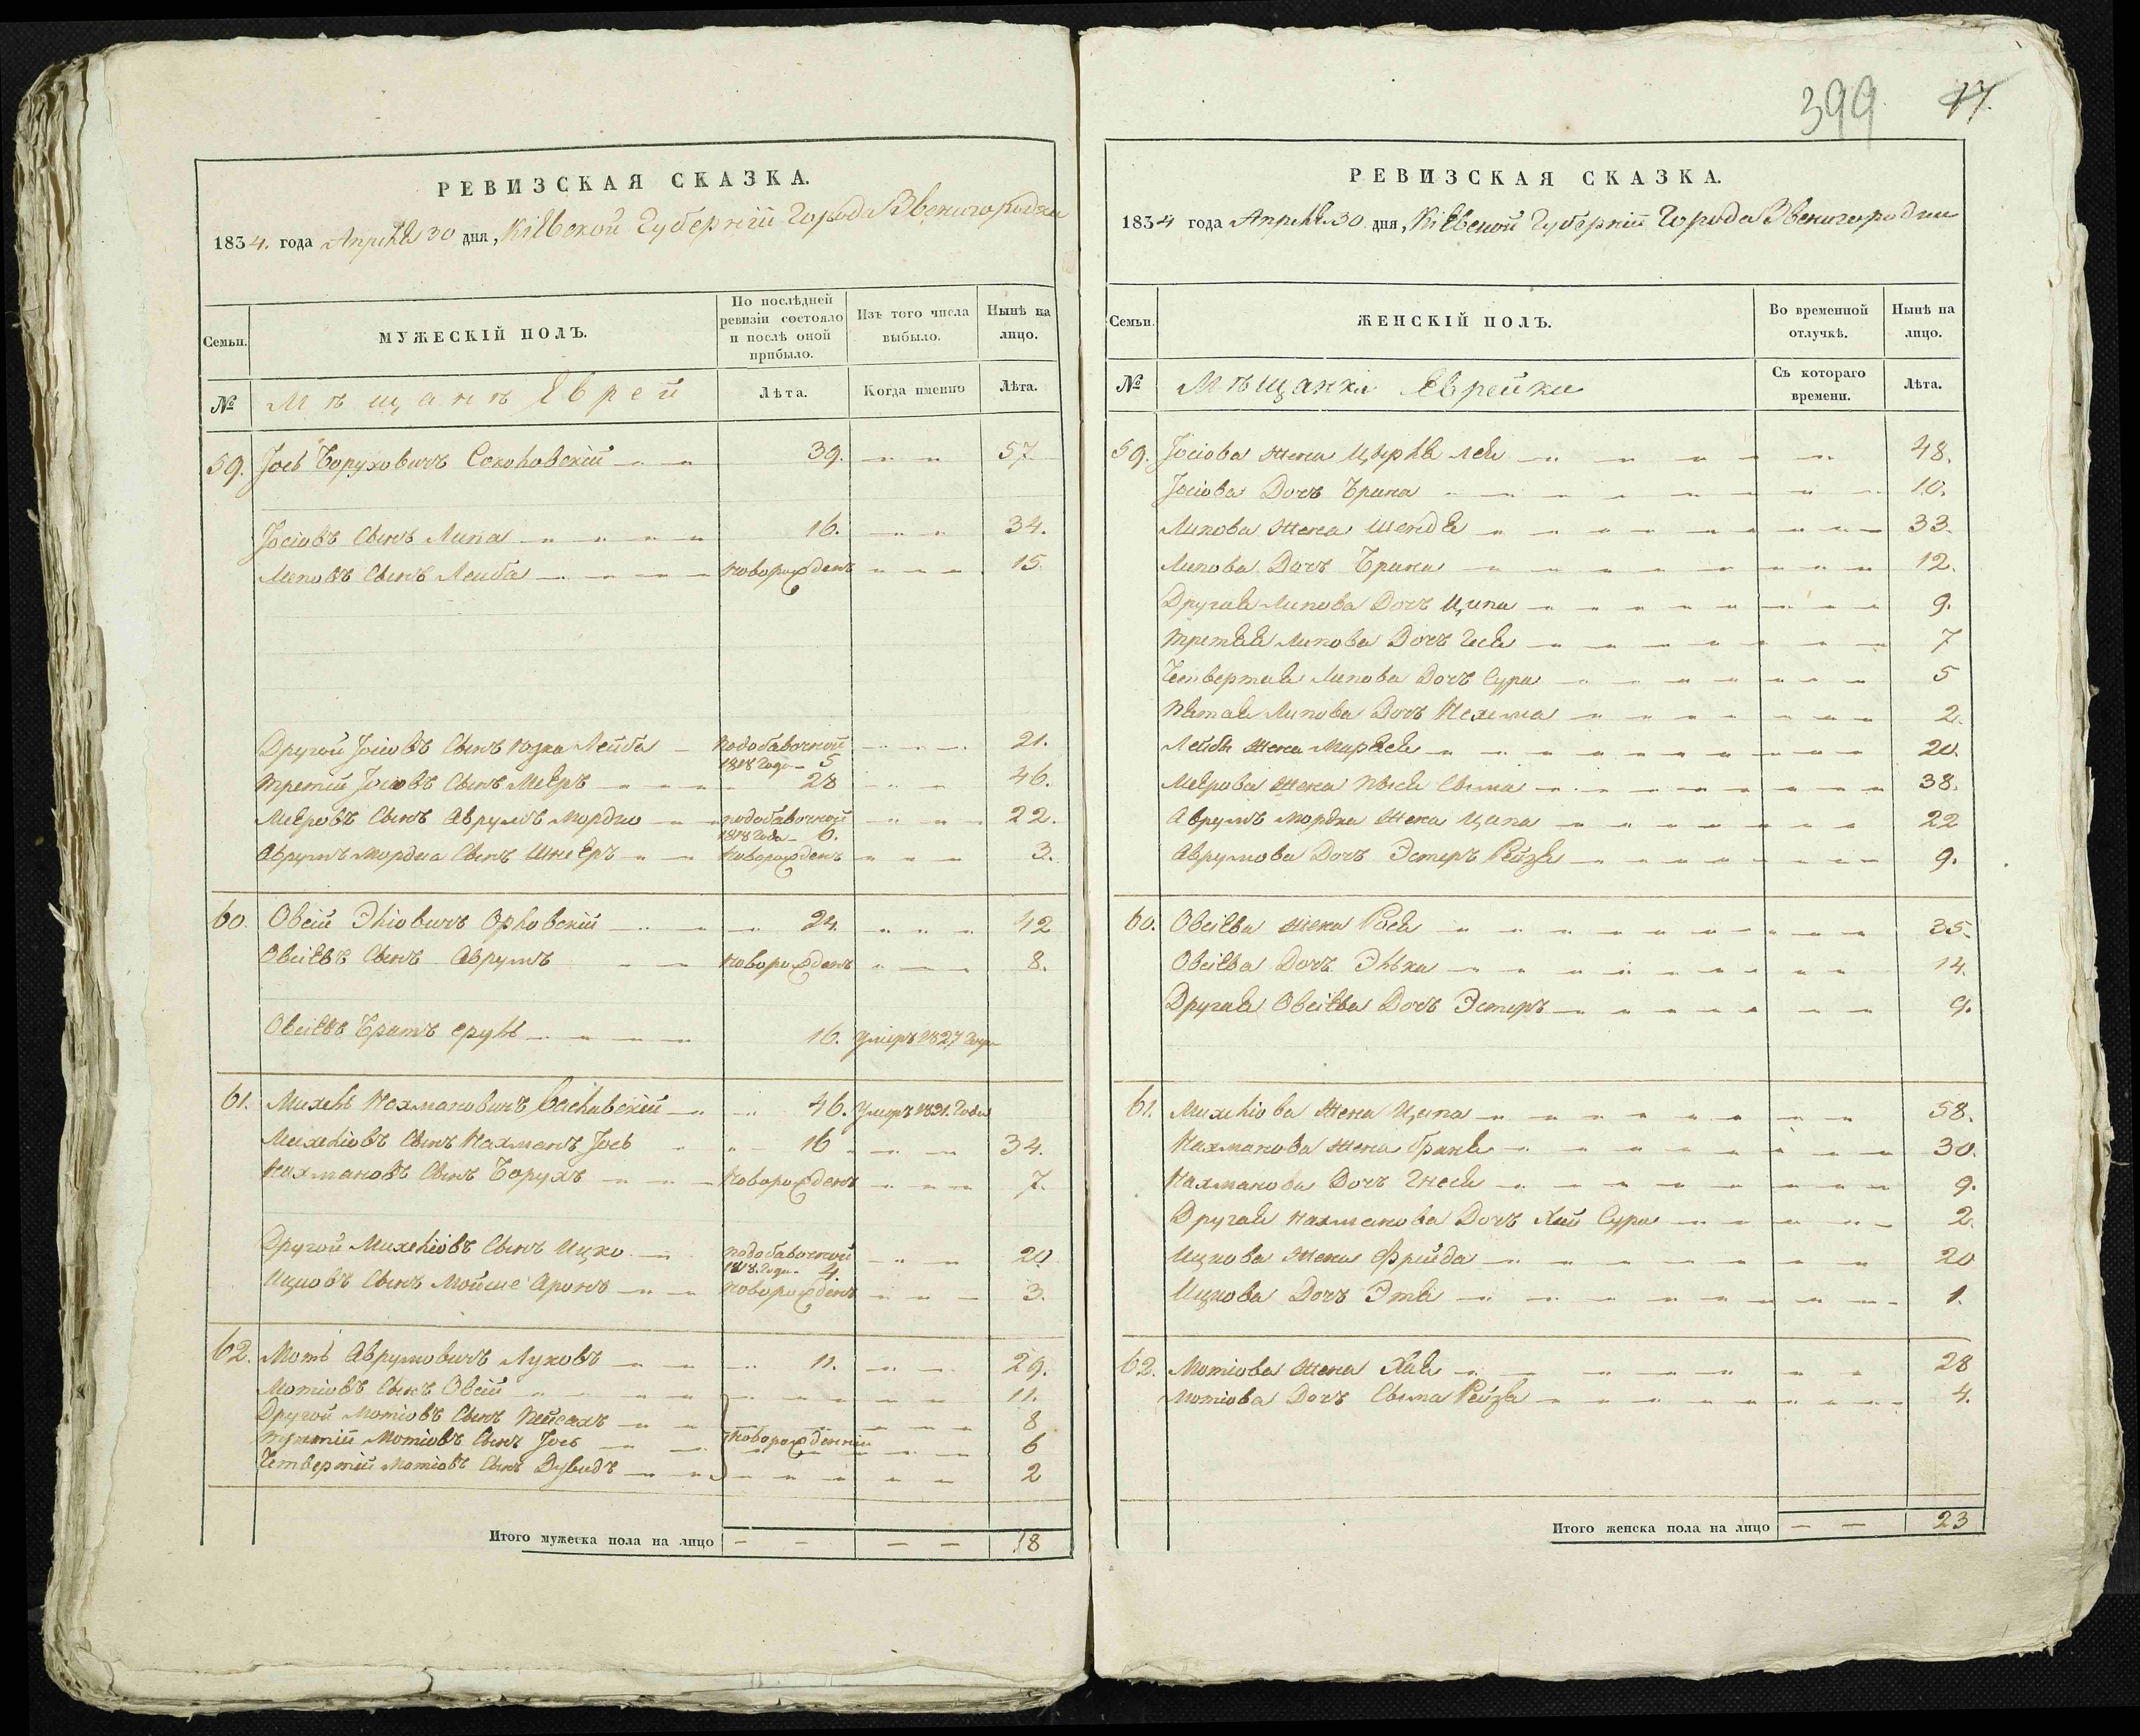 399 17.
РЕВИЗСКАЯ СКАЗКА.
1834. года Апреля 30 дня, Кіевской Губерніи Города Звенигородки
Семьи.
МУЖЕСКІЙ ПОЛЪ.
По послѣдней ревизіи состояло и послѣ оной прибыло.
Изъ того числа выбыло.
Нынѣ на лицо.
№ Мѣщанъ Еврей Лѣта. Когда именно Лѣта.
59. Іось Боруховичъ Соколовскій 39. 57
Іосіовъ Сынъ Липа 16. 34.
Липовъ Сынъ Лейба новорожденъ 15.
Другой Іосіовъ Сынъ Юзка Лейба подобавочной 1818 Года 5 21.
третій Іосіовъ Сынъ Меѣръ 28 46.
Меѣровъ Сынъ Аврумъ Мордко подобавочной 1818 Года 6. 22.
Аврумъ Мордка Сынъ Шнеѣръ новорожденъ 3.
60. Овсій Эліовичъ Орловскій 24. 42
Овсіевъ Сынъ Аврумъ новорожденъ 8.
Овсіевъ Братъ Сруль 16. умеръ 1827 Года
61. Михель Нахмановичъ 46. умеръ 1831. Года
Михеліовъ Сынъ Нахманъ Іось 16 34.
Нахмановъ Сынъ Борухъ новорожденъ 7.
Другой Михеліовъ Сынъ Ицко подобавочной 1818. Года 4. 20
Ицковъ Сынъ Мойше Аронъ новорожденъ 3.
62. Моть Аврумовичъ Луковъ 11. 29.
Мотіовъ Сынъ Овсій 11.
Другой Мотіовъ Сынъ Пейсахъ 8
третій Мотіовъ Сынъ Іось новорожденніи 6
Четвертій Мотіовъ Сынъ Дувидъ 2
Итого мужеска пола на лицо 18
РЕВИЗСКАЯ СКАЗКА.
1834 года Апреля 30 дня, Кіевской Губерніи Города Звенигородки
Семьи.
ЖЕНСКІЙ ПОЛЪ.
Во временной отлучкѣ.
Нынѣ на лицо.
№ Мѣщанки Еврейки Съ котораго времени. Лѣта.
59. Іосіова жена Цирля Лея 48.
Іосіова Дочъ Брика 10.
Липова жена Шендя 33.
Липова Дочъ Брика 12.
Другая Липова Дочъ Ципа 9.
третяя Липова Дочъ Гися 7
Четвертая Липова Дочъ Сура 5
Пятая Липова Дочъ Нехима 2.
Лейби жена Мирася 20.
Меерова жена Песя Сыма 38.
Аврумъ Мордка жена Ципа 22
Аврумова Дочъ Эстеръ Рейзя 9.
60. Овсіева жена Рася 35.
Овсіева Дочъ Элька 14.
Другая Овсіева Дочъ Эстеръ 9.
61. Михеліова жена Ципа 58.
Нахманова жена Браня 30.
Нахманова Дочъ Гнеся 9.
Другая Нахманова Дочъ Хая Сура 2.
Ицкова жена Фрейда 20
Ицкова Дочъ Этя 1.
62. Мотіова жена Хая 28
Мотіова Дочъ Сыма Рейзя 4.
Итого женска пола на лицо 23